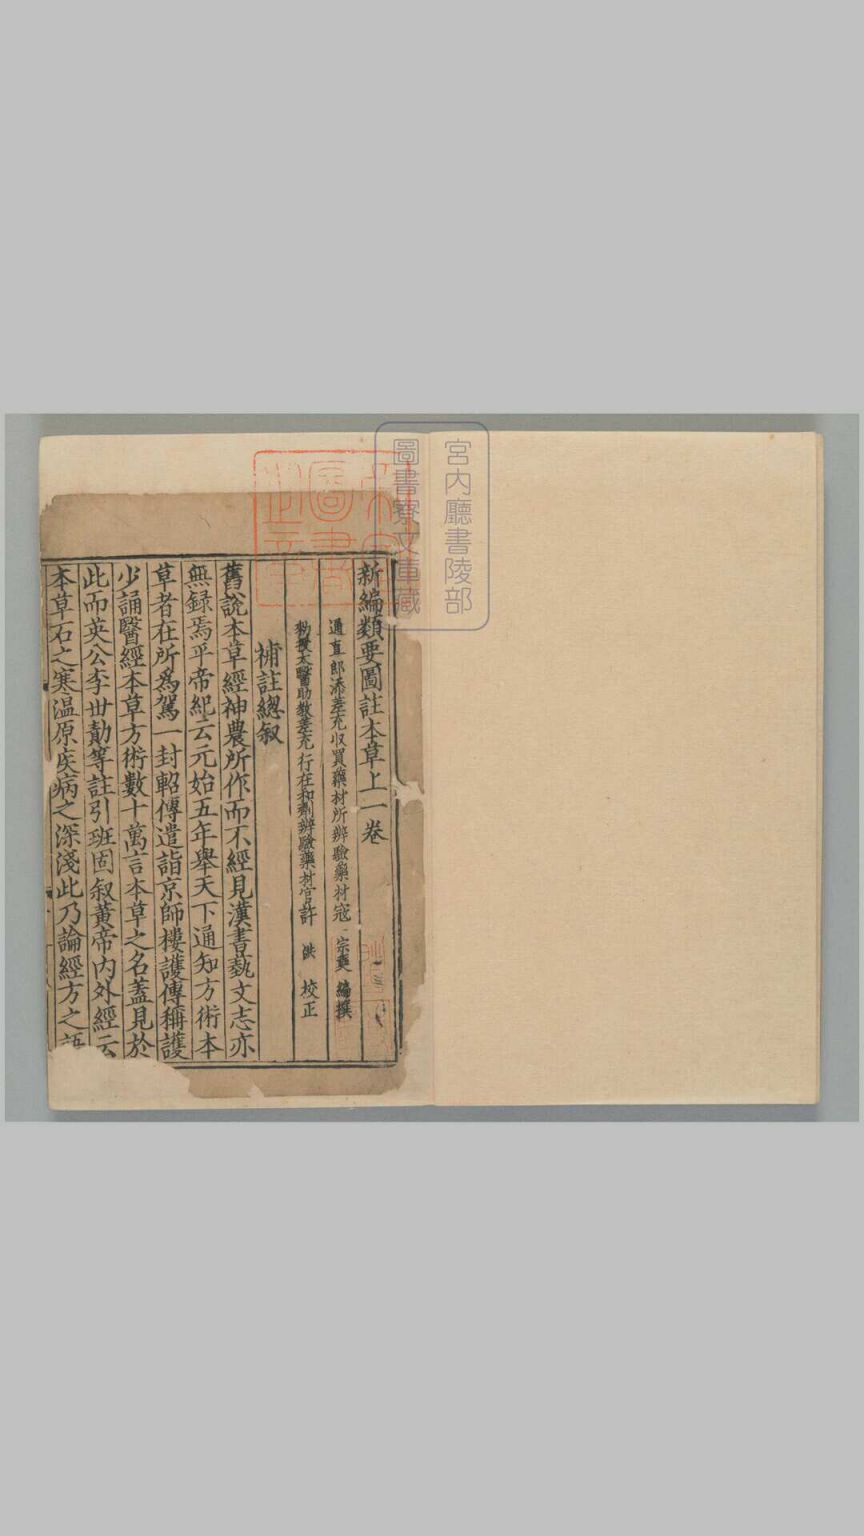 宮内廳書陵部
圖書寮文庫藏
新編類要圖註本草上一卷
通直郎添差充収買藥材所辨驗藥材寇宗奭編撰
勑授太醫助教差充行在和劑辨驗藥材官許洪校正
補註總叙
舊說本草經神農所作而不經見漢書藝文志亦
無録焉平帝紀云元始五年舉天下通知方術本
草者在所爲駕一封軺傳遣詣京師樓護傳稱護
少誦醫經本草方術數十萬言本草之名蓋見於
此而英公李世勣等註引班固叙黃帝内外經云
本草石之寒温原疾病之深淺此乃論經方之語